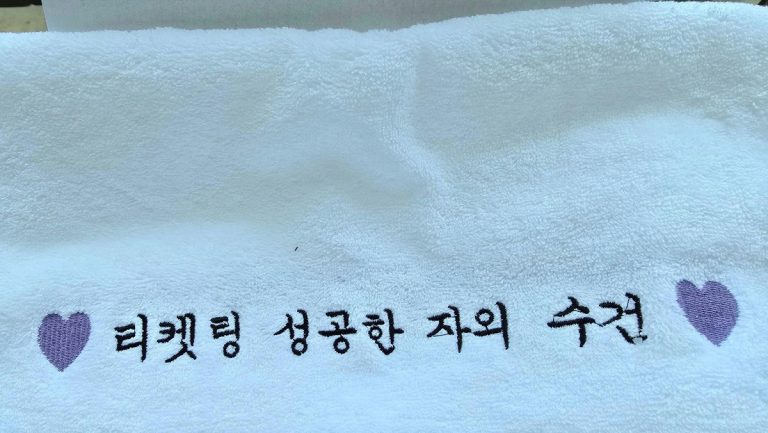 티켓팅 성공한 자외 수건